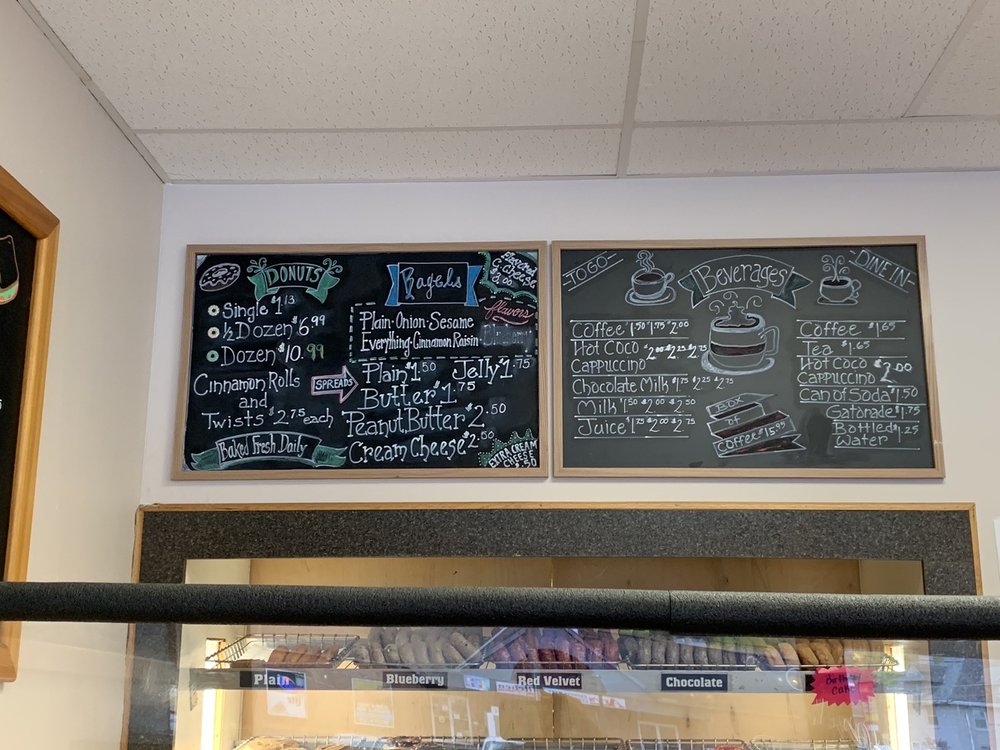 DONUTS
Single $1.13
½ Dozen $6.99
Dozen $10.99
Cinnamon Rolls
and
Twists $2.75 each
Baked Fresh Daily
Bagels
Cheese
flavors
Plain-Onion-Sesame
Everything-Cinnamon Raisin
SPREADS
Plain $1.50 Jelly $1.75
Butter $1.75
Peanut Butter $2.50
Cream Cheese $2.50
EXTRA CREAM
CHEESE
TO GO
Beverages
DINE IN
Coffee $1.50 $1.75 $2.00
Hot Coco $2.00 $2.25 $2.75
Cappuccino
Chocolate Milk $1.75 $2.25 $2.75
Milk $1.50 $2.00 $2.50
Juice $1.75 $2.00 $2.75
BOX
of
Coffee $15.95
Coffee $1.65
Tea $1.65
Hot Coco
Cappuccino $2.00
Can of Soda $1.50
Gatorade $1.75
Bottled $1.25
Water
Plain
Blueberry
Red Velvet
Chocolate
Birthday
Cake